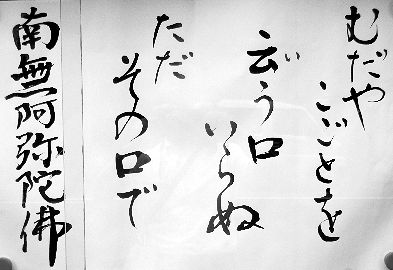 むだや
こごとを
云゛う口
いらぬ
ただ
その口で
南無阿弥陀佛